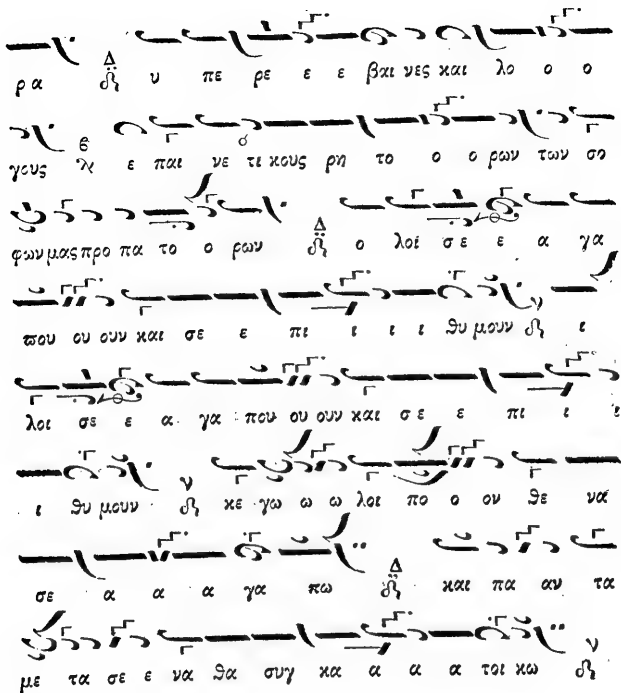 ρα Δ υ πε ρε ε ε βαι νες και λο ο ο
γους ε παι νε τι κους ρη το ο ο ρων των σο
φων μας προ πα το ο ρων Δ ο λοί σε ε ε α γα
που ου ουν και σε ε πι ι ι ι θυ μουν ν ι
λοι σε ε α γα που ου ουν και σε ε πι ι ι
ι θυ μουν ν κε γω ω ω λοι πο ο ον θε να
σε α α α γα πω Δ και πα αν τα
με τα σε ε να θα συγ κα α α α τοι κω ν